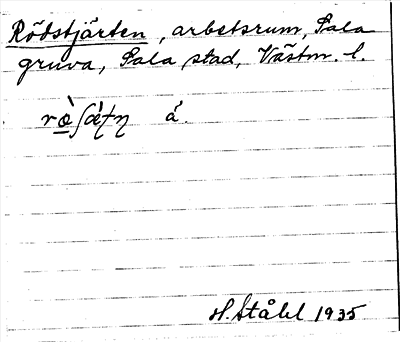 Rödstjärten, arbetsrum, Sala
gruva, Sala stad, Västm. l.
å.
H. Ståhl 1935